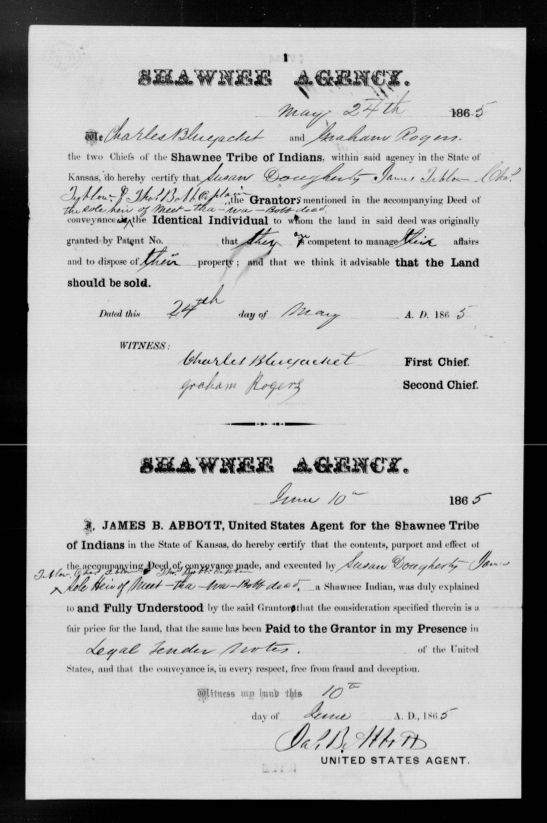 1
SHAWNEE AGENCY.
May 24th 1865
We Charles Bluejacket and Graham Rogers.
the two Chiefs of the Shawnee Tribe of Indians, within said agency in the State of
Kansas, do hereby certify that Susan Dougherty James
Captain the Grantors mentioned in the accompanying Deed of
the sole heir of Meet-tha-wa-Bott dead
conveyance the Identical Individual to whom the land in said deed was originally
granted by Patent No. that they are competent to manage their affairs
and to dispose of their property; and that we think it advisable that the Land
should be sold.
Dated this 24th day of May A. D. 1865
WITNESS:
Charles Bluejacket First Chief.
Graham Rogers Second Chief.
SHAWNEE AGENCY.
June 10th 1865
I, JAMES B. ABBOTT, United States Agent for the Shawnee Tribe
of Indians in the State of Kansas, do hereby certify that the contents, purport and effect of
the accompanying Deed of conveyance made, and executed by Susan Dougherty James
Sole Heirs of Meet-tha-wa-Bott dead, a Shawnee Indian, was duly explained
to and Fully Understood by the said Grantors that the consideration specified therein is a
fair price for the land, that the same has been Paid to the Grantor in my Presence in
Legal Tender Notes. of the United
States, and that the conveyance is, in every respect, free from fraud and deception.
Witness my hand this 10th
day of June A. D., 1865
Jas. B. Abbott
UNITED STATES AGENT.